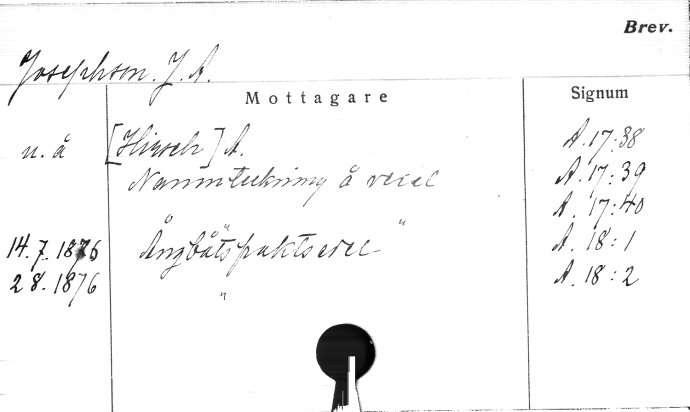 Brev.
Josephson. J. A.
Mottagare Signum
u. å [Hirsch] A. A. 17:38
Namnteckning å vexel A. 17:39
" " A. 17:40
14.7.1876 Ångbåtsfraktsedel A. 18:1
2 8.1876 " A. 18:2